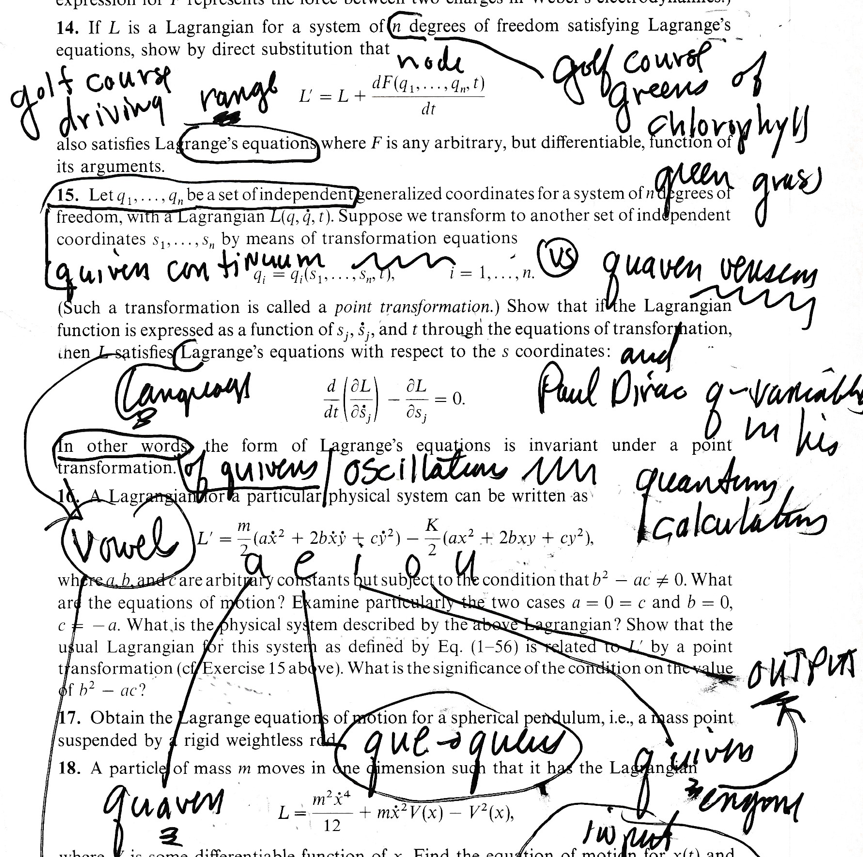 expression for F represents the force between two charges in Weber's electrodynamics.)
14. If L is a Lagrangian for a system of n degrees of freedom satisfying Lagrange's
equations, show by direct substitution that
node
golf course
driving range
golf course
greens of
chlorophyll
green grass
L' = L + dF(q₁, . . . , qₙ, t) / dt
also satisfies Lagrange's equations where F is any arbitrary, but differentiable, function of
its arguments.
15. Let q₁, . . . , qₙ be a set of independent generalized coordinates for a system of n degrees of
freedom, with a Lagrangian L(q, q̇, t). Suppose we transform to another set of independent
coordinates s₁, . . . , sₙ by means of transformation equations
quiven continuum
qᵢ = qᵢ(s₁, . . . , sₙ, t), i = 1, . . . , n.
VS
quaven
(Such a transformation is called a point transformation.) Show that if the Lagrangian
function is expressed as a function of sⱼ, ṡⱼ, and t through the equations of transformation,
then L satisfies Lagrange's equations with respect to the s coordinates:
and
Paul Dirac q-variables
in his
quantum
calculations
d/dt (∂L/∂ṡⱼ) − ∂L/∂sⱼ = 0.
In other words, the form of Lagrange's equations is invariant under a point
transformation.
of quivens / oscillations
16. A Lagrangian for a particular physical system can be written as
Vowel
L' = m/2 (aẋ² + 2bẋẏ + cẏ²) − K/2 (ax² + 2bxy + cy²),
a e i o u
where a, b, and c are arbitrary constants but subject to the condition that b² − ac ≠ 0. What
are the equations of motion? Examine particularly the two cases a = 0 = c and b = 0,
c = −a. What is the physical system described by the above Lagrangian? Show that the
usual Lagrangian for this system as defined by Eq. (1–56) is related to L' by a point
transformation (cf. Exercise 15 above). What is the significance of the condition on the value
of b² − ac?
output
17. Obtain the Lagrange equations of motion for a spherical pendulum, i.e., a mass point
suspended by a rigid weightless rod.
que → queus
quivens
engine
18. A particle of mass m moves in one dimension such that it has the Lagrangian
quavens
L = m²ẋ⁴/12 + mẋ²V(x) − V²(x),
input
where V is some differentiable function of x. Find the equation of motion for x(t) and